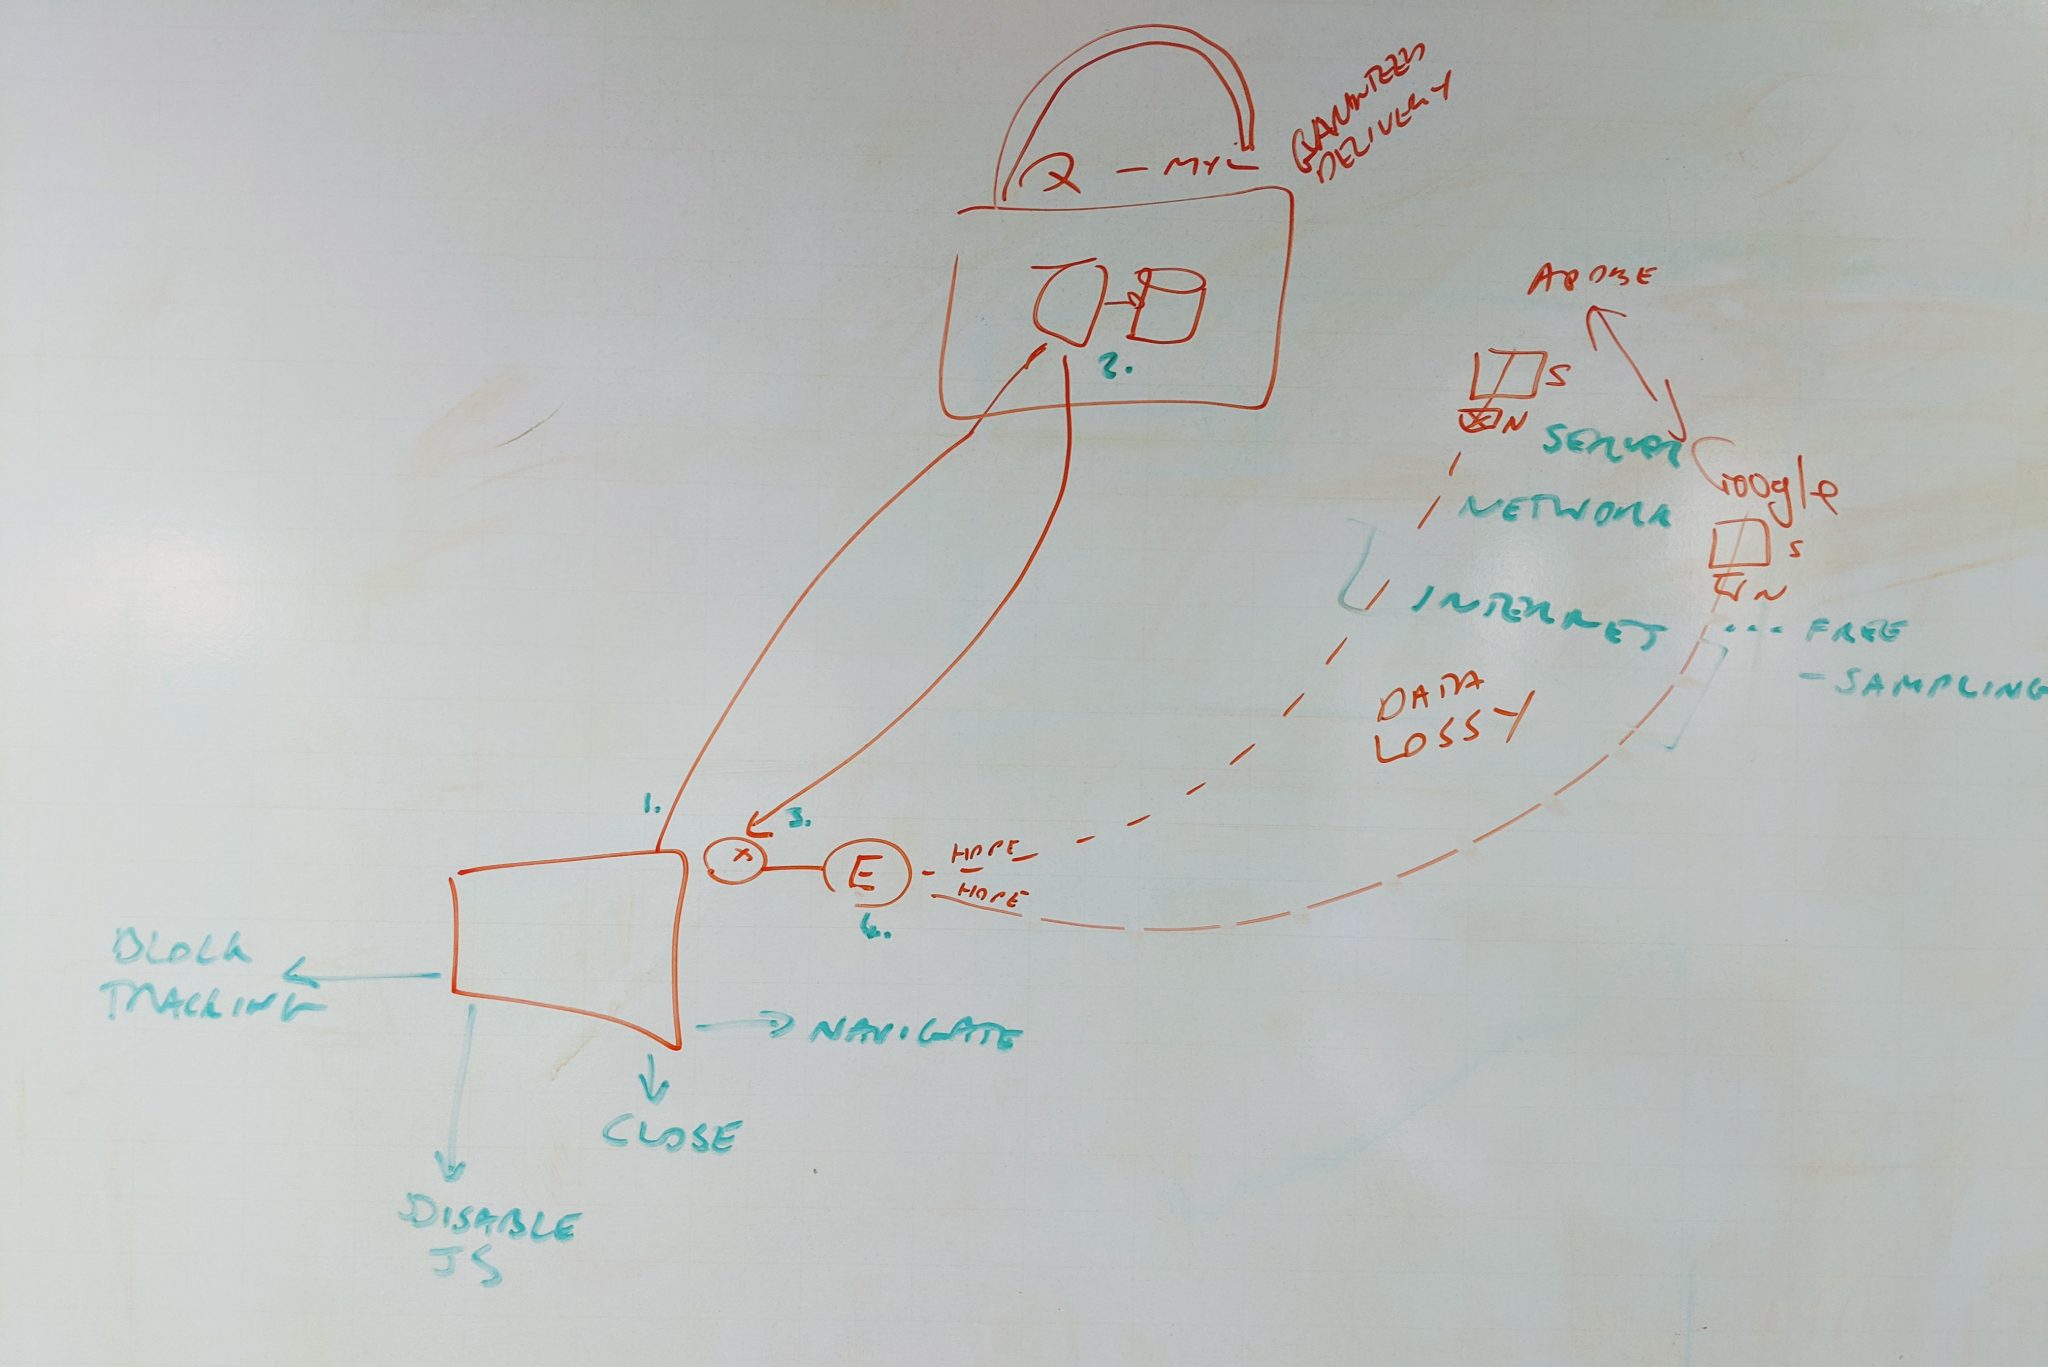 GARANTEED
DELIVERY
ADOBE
S
N
SERVER
Google
NETWORK
S
N
INTERNET
... FREE
- SAMPLING
DATA
LOSSY
1.
2.
3.
X
E
HOPE
HOPE
BLOCK
TRACKING
NAVIGATE
CLOSE
DISABLE
JS